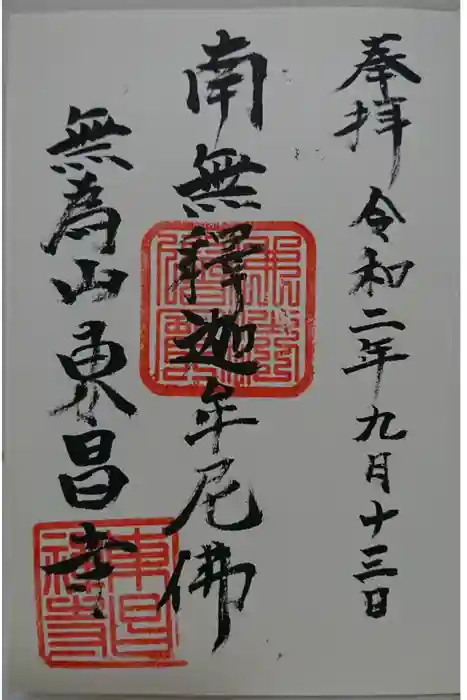 奉拝 令和二年九月十三日
南無釋迦牟尼佛
無為山東昌寺
佛法僧寶
東昌禅寺